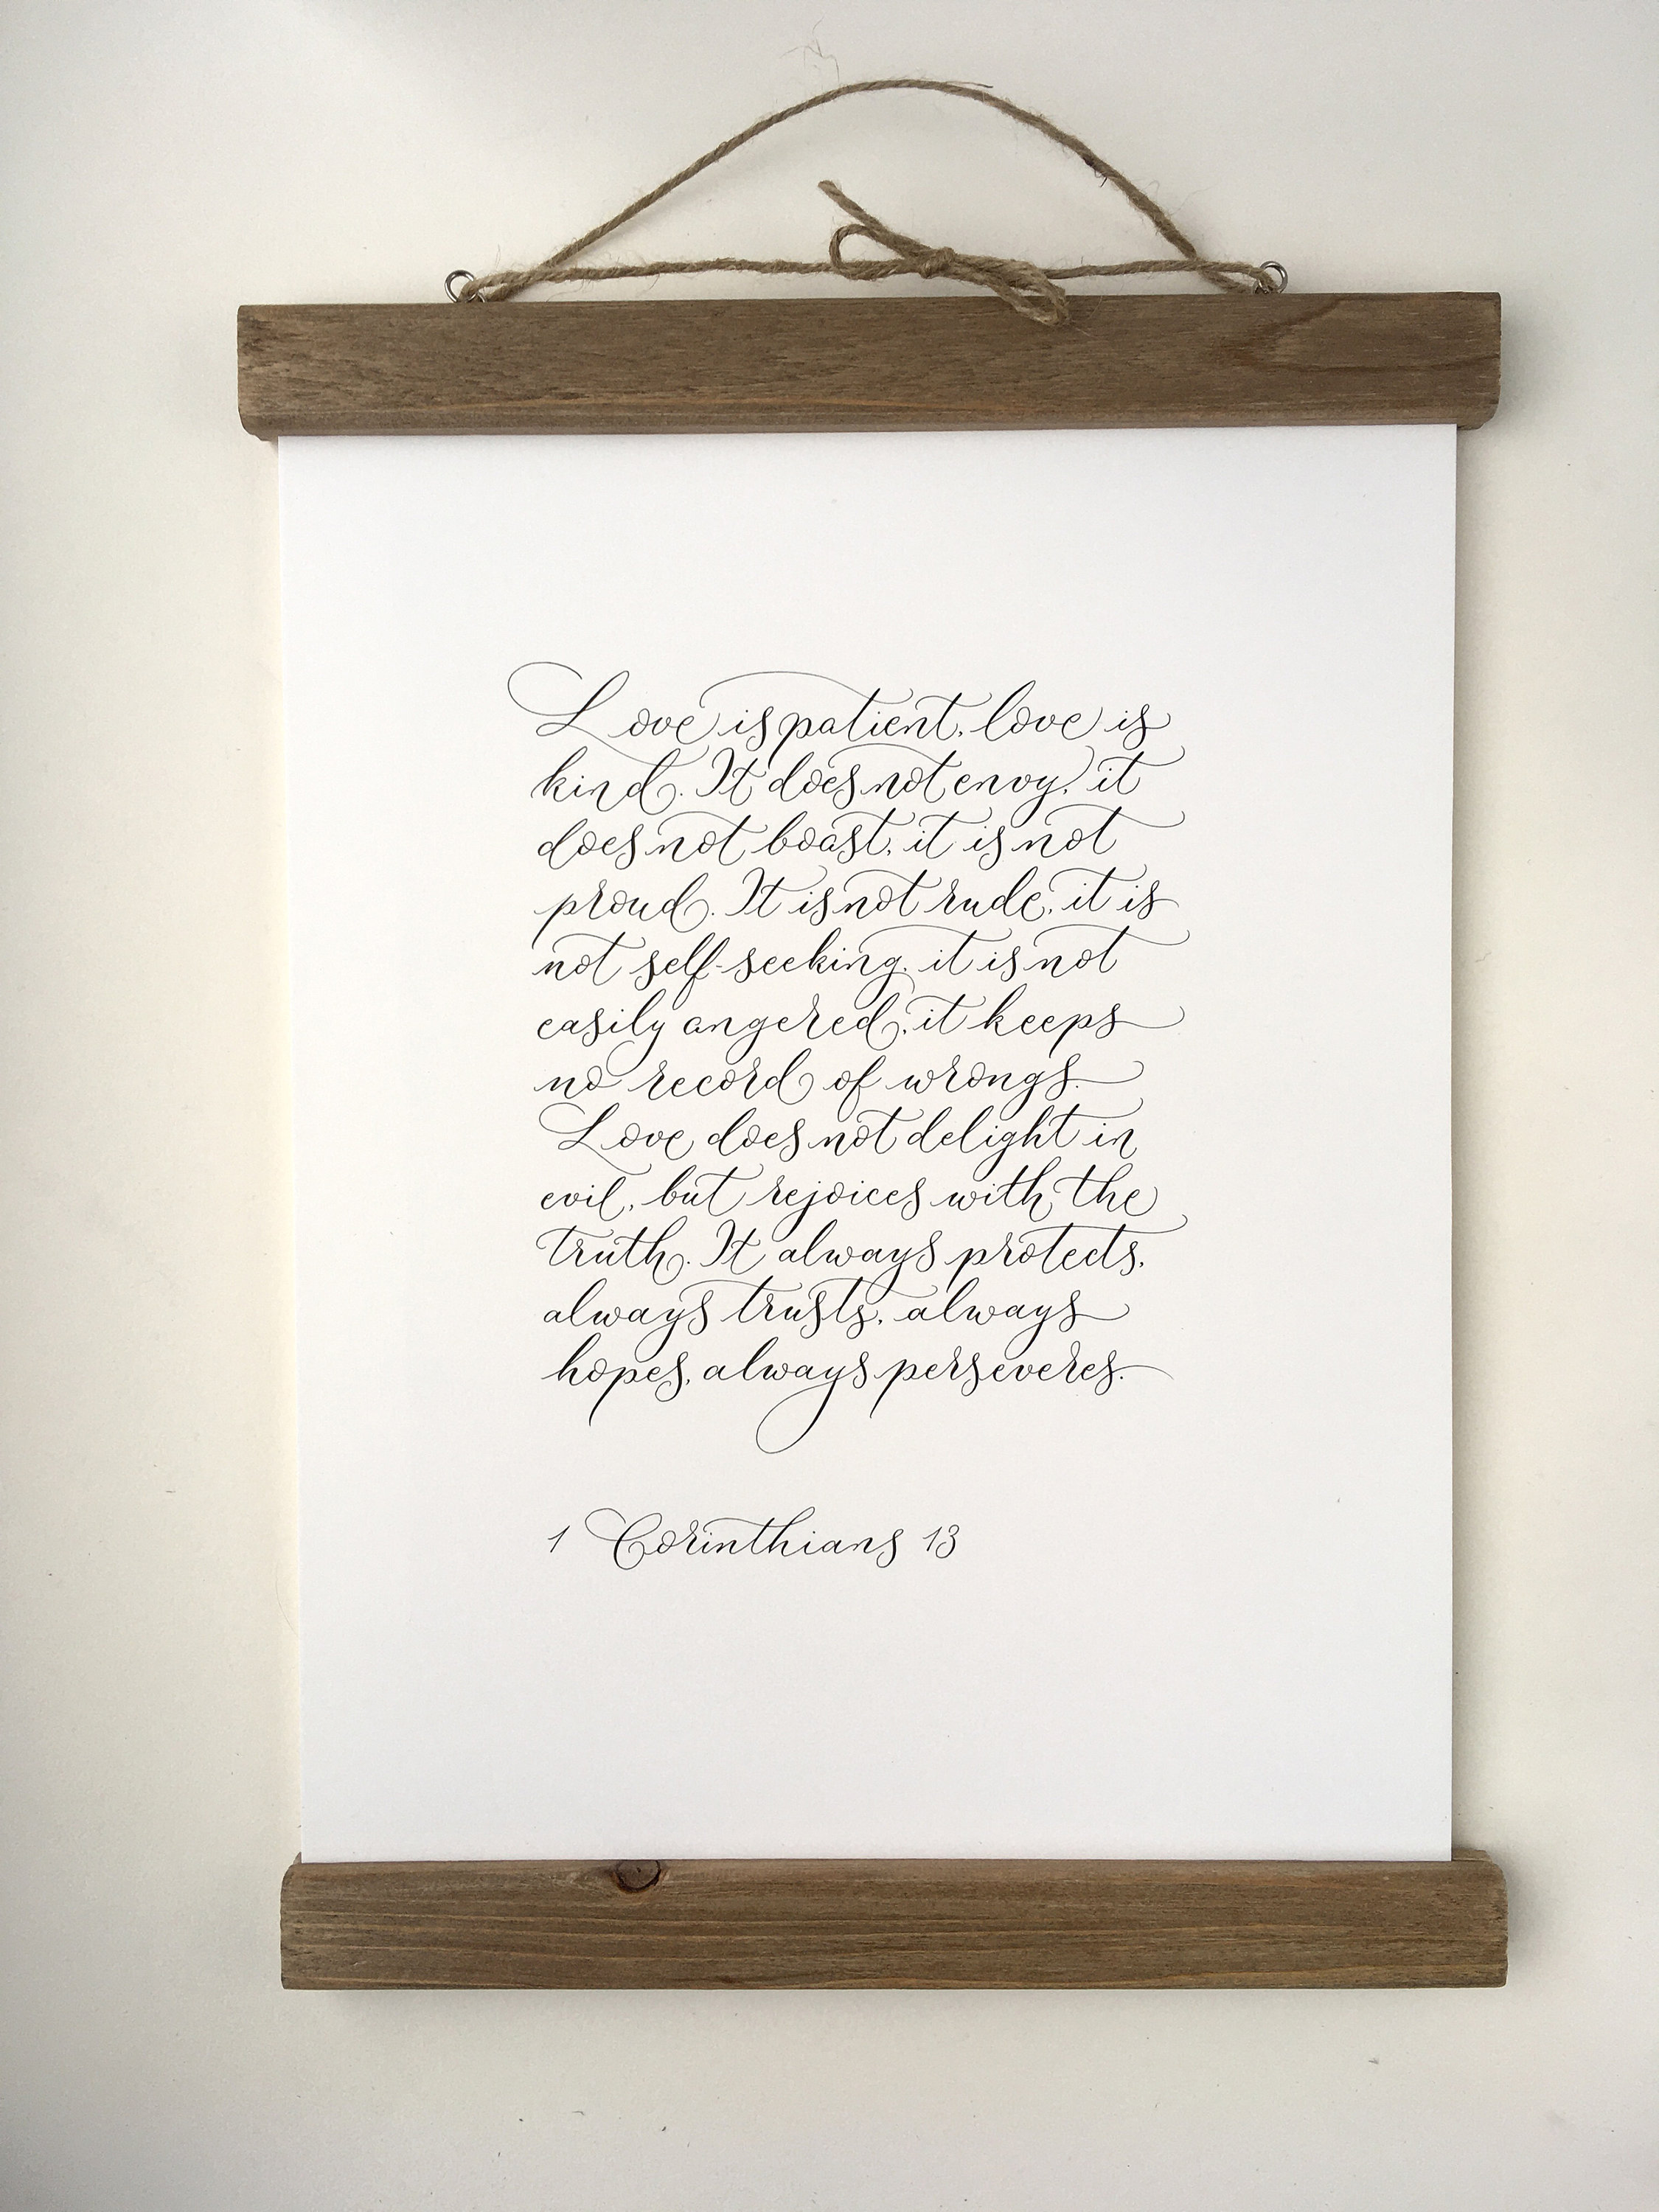 Love is patient, love is
kind. It does not envy, it
does not boast, it is not
proud. It is not rude, it is
not self-seeking, it is not
easily angered, it keeps
no record of wrongs.
Love does not delight in
evil, but rejoices with the
truth. It always protects,
always trusts, always
hopes, always perseveres.
1 Corinthians 13